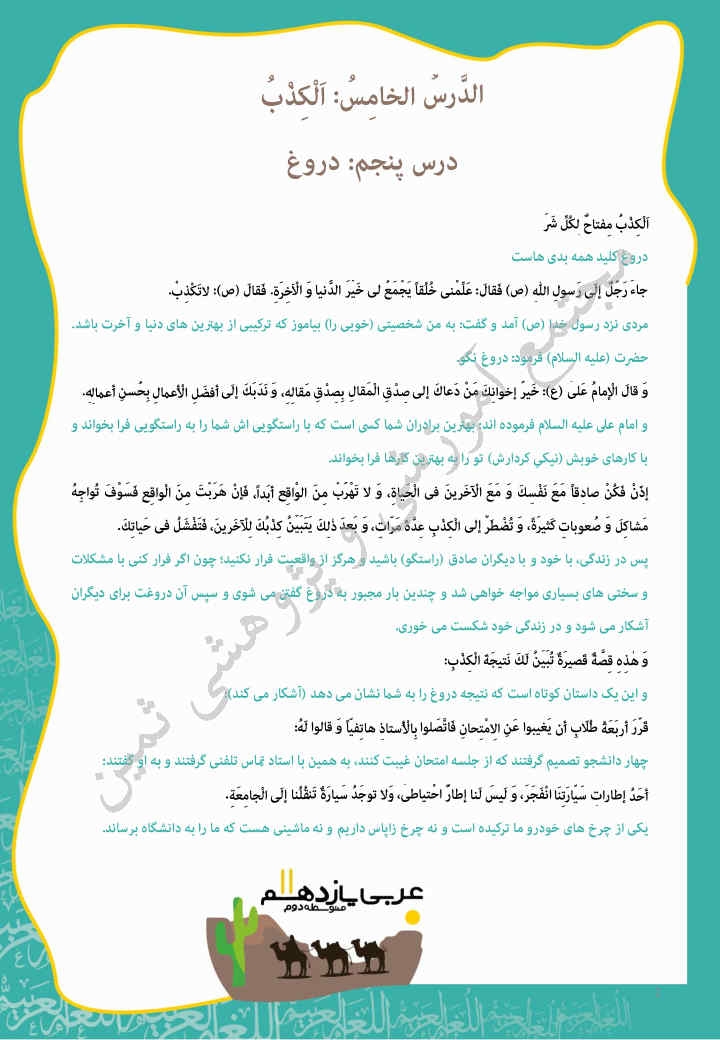 الدَّرسُ الخامِسُ: اَلْکِذْبُ
درس پنجم: دروغ
اَلْکِذْبُ مِفتاحٌ لِکُلِّ شَرٍّ
دروغ کلید همه بدی هاست
جاءَ رَجُلٌ إلَی رَسولِ اللهِ (ص) فَقالَ: عَلِّمْنی خُلُقاً یَجْمَعُ لی خَیْرَ الدُّنیا وَ الْآخِرَةِ. فَقالَ (ص): لاتَکْذِبْ.
مردی نزد رسول خدا (ص) آمد و گفت: به من شخصیتی (خوبی را) بیاموز که ترکیبی از بهترین های دنیا و آخرت باشد.
حضرت (علیه السلام) فرمود: دروغ نگو.
وَ قالَ الْإمامُ عَلی (ع): خَیرُ إخوانِكَ مَنْ دَعاكَ إلی صِدْقِ الْمَقالِ بِصِدْقِ مَقالِهِ، وَ نَدَبَكَ إلَی أفضَلِ الْأعمالِ بِحُسنِ أعمالِهِ.
و امام علی علیه السلام فرموده اند: بهترین برادران شما کسی است که با راستگویی اش شما را به راستگویی فرا بخواند و
با کارهای خویش (نیکیِ کردارش) تو را به بهترین کارها فرا بخواند.
إذَنْ فَکُنْ صادِقاً مَعَ نَفْسِكَ وَ مَعَ الْآخَرینَ فی الْحَیاةِ، وَ لا تَهْرَبْ مِنَ الْواقِعِ أبَداً، فَإنْ هَرَبْتَ مِنَ الْواقِعِ فَسَوْفَ تُواجِهُ
مَشاکِلَ وَ صُعوباتٍ کَثیرَةً، وَ تُضْطَرُّ إلی الْکِذْبِ عِدَّةَ مَرّاتٍ، وَ بَعدَ ذلِكَ یَتَبَیَّنُ کِذْبُكَ لِلْآخَرینَ، فَتَفْشَلُ فی حَیاتِكَ.
پس در زندگی، با خود و با دیگران صادق (راستگو) باشید و هرگز از واقعیت فرار نکنید؛ چون اگر فرار کنی با مشکلات
و سختی های بسیاری مواجه خواهی شد و چندین بار مجبور به دروغ گفتن می شوی و سپس آن دروغت برای دیگران
آشکار می شود و در زندگی خود شکست می خوری.
وَ هٰذِهِ قِصَّةٌ قَصیرَةٌ تُبَیِّنُ لَكَ نَتیجَةَ الْکِذْبِ:
و این یک داستان کوتاه است که نتیجه دروغ را به شما نشان می دهد (آشکار می کند):
قَرَّرَ أربَعَةُ طُلّابٍ أن یَغیبوا عَنِ الِامْتِحانِ فَاتَّصَلوا بِالْأستاذِ هاتِفیّاً وَ قالوا لَهُ:
چهار دانشجو تصمیم گرفتند که از جلسه امتحان غیبت کنند، به همین با استاد تماس تلفنی گرفتند و به او گفتند:
أحَدُ إطاراتِ سَیّارَتِنَا انْفَجَرَ، وَ لَیسَ لَنا إطارٌ احْتیاطی، وَلا توجَدُ سَیارَةٌ تَنقُلُنا إلَی الْجامِعَةِ.
یکی از چرخ های خودرو ما ترکیده است و نه چرخ زاپاس داریم و نه ماشینی هست که ما را به دانشگاه برساند.
مجتمع آموزشی و پژوهشی ثمین
عربی یازدهم
متوسطه دوم